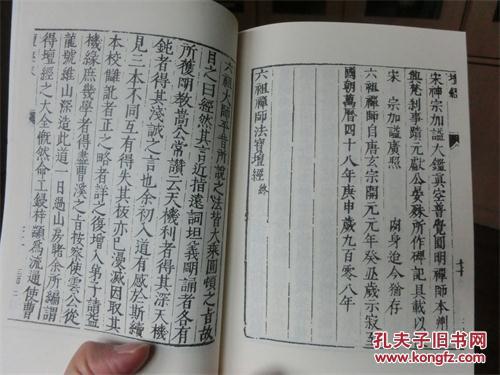 宋神宗加謚大鑑真空普覺圓明禪師本州
興梵刹事蹟元獻公晏殊所作碑記具載以
宋　宗加謚廣照　肉身迨今猶存
六祖禪師自唐玄宗開元元年癸丑歲示寂至
國朝萬曆四十八年庚申歲九百零八年
六祖禪師法寶壇經終
六祖大師平昔所說之法皆大乘圓頓之旨故
目之曰經然其言近指遠詞坦義明誦者各有
所獲明教嵩公常讚云天機利者得其深天機
鈍者得其淺誠哉言也余初入道有感於斯續
見三本不同互有得失其板亦已漫滅因取其
本校讎訛者正之略者詳之復增入弟子請益
機緣庶幾學者得盡曹溪之旨按察使雲公從
龍號維山深造此道一日過山房睹余所編謂
得壇經之大全慨然命工鋟梓顓為流通使曹
孔夫子旧书网
www.kongfz.com